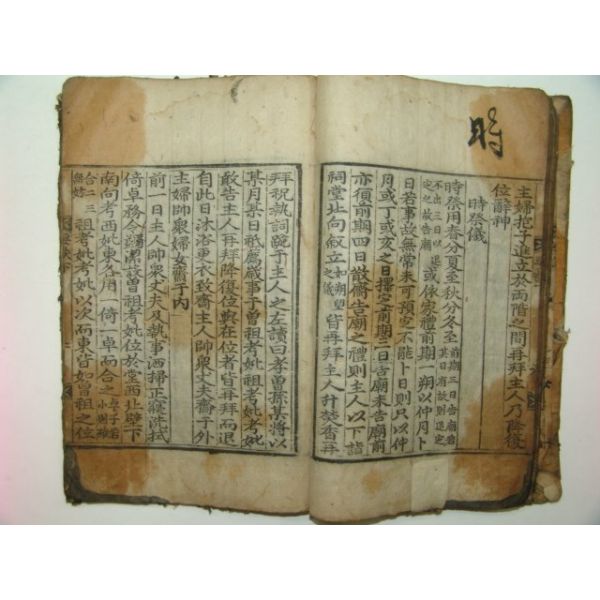 時
主婦抱子進立於兩階之間再拜主人乃降復
位辭神
時祭儀
時祭用春分夏至秋分冬至前期三日告廟若其日有故則退定
不出三日以退定之故告廟或依家禮前期一朔以仲月卜
日若事故無常未可預定不能卜日則只以仲
月或丁或亥之日擇定之前期三日告廟未告廟前
亦須前期四日散齋告廟之禮則主人以下詣
祠堂北向敘立如朔望之儀皆再拜主人升焚香再
拜祝執詞跪于主人之左讀曰孝曾孫某將以
某月某日祗薦歲事于曾祖考妣祖考妣考妣
敢告主人再拜降復位與在位者皆再拜而退
自此日沐浴更衣致齋主人帥衆丈夫齋于外
主婦帥衆婦女齋于內
前一日主人帥衆丈夫及執事洒掃正寢洗拭
倚卓務令蠲潔設曾祖考妣位於堂西北壁下
南向考西妣東各用一倚一卓而合之小則雖
合二三無妨祖考妣考妣以次而東皆如曾祖之位